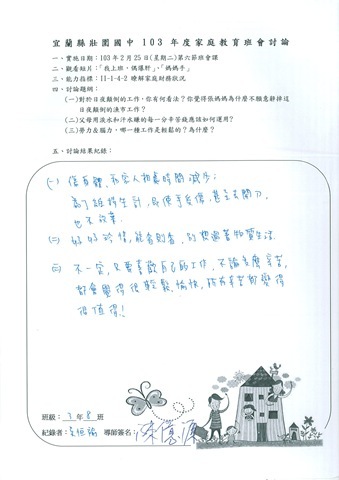 宜蘭縣壯圍國中 103 年度家庭教育班會討論
一、實施日期：103年2月25日(星期二)第六節班會課
二、觀看短片：「我上班，偶爆肝」、「媽媽手」
三、能力指標：II-1-4-2 瞭解家庭財務狀況
四、討論題綱：
(一)對於日夜顛倒的工作，你有何看法？你覺得張媽媽為什麼不願意辭掉這
日夜顛倒的漁市工作？
(二)父母用淚水和汗水賺的每一分辛苦錢應該如何運用？
(三)勞力&腦力，哪一種工作是輕鬆的？為什麼？
五、討論結果紀錄：
(一) 傷身體，和家人相處時間減少；
為了維持生計，即使手受傷，甚至去開刀，
也不放棄。
(二) 好好珍惜，能省則省，別想過著物質生活
(三) 不一定，只要喜歡自己的工作，不論多麼辛苦，
都會覺得很輕鬆、愉快，所有辛苦都變得
很值得！
班級：7年8班
紀錄者： 導師簽名：